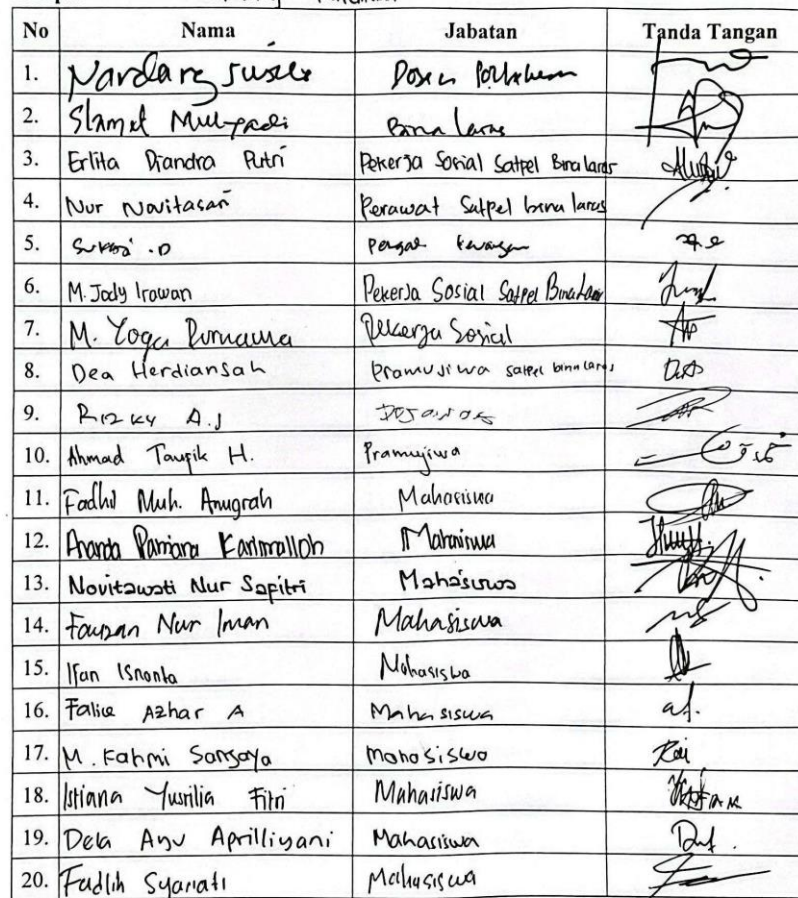 No Nama Jabatan Tanda Tangan
1. Nardang Susila Dosen
2. Slamet Mulyadi Bina laras
3. Erlita Diandra Putri Pekerja Sosial Satpel Bina laras
4. Nur Novitasari Perawat Satpel bina laras
5. .D
6. M. Jody Irawan Pekerja Sosial Satpel Bina Laras
7. M. Yoga Purnama Pekerja Sosial
8. Dea Herdiansah Pramujiwa satpel bina laras
9. Rizky A.J
10. Ahmad Taupik H. Pramujiwa
11. Fadhil Muh. Anugrah Mahasiswa
12. Ananda Karimalloh Mahasiswa
13. Novitawati Nur Sapitri Mahasiswa
14. Fauzan Nur Iman Mahasiswa
15. Ifan Isnanta Mahasiswa
16. Azhar A Mahasiswa
17. M. Fahmi Sansaya Mahasiswa
18. Istiana Yusrilia Fitri Mahasiswa
19. Dela Ayu Aprilliyani Mahasiswa
20. Fadlih Syariati Mahasiswa